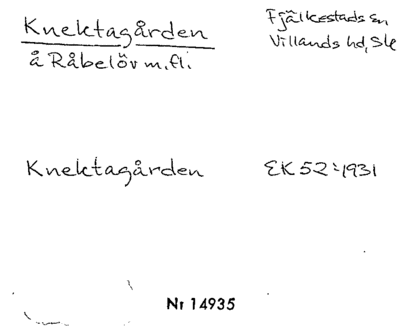 Knektagården
å Råbelöv m.fl.
Fjälkestads sn
Villands hd, Skå
Knektagården
EK 52:1931
Nr 14935